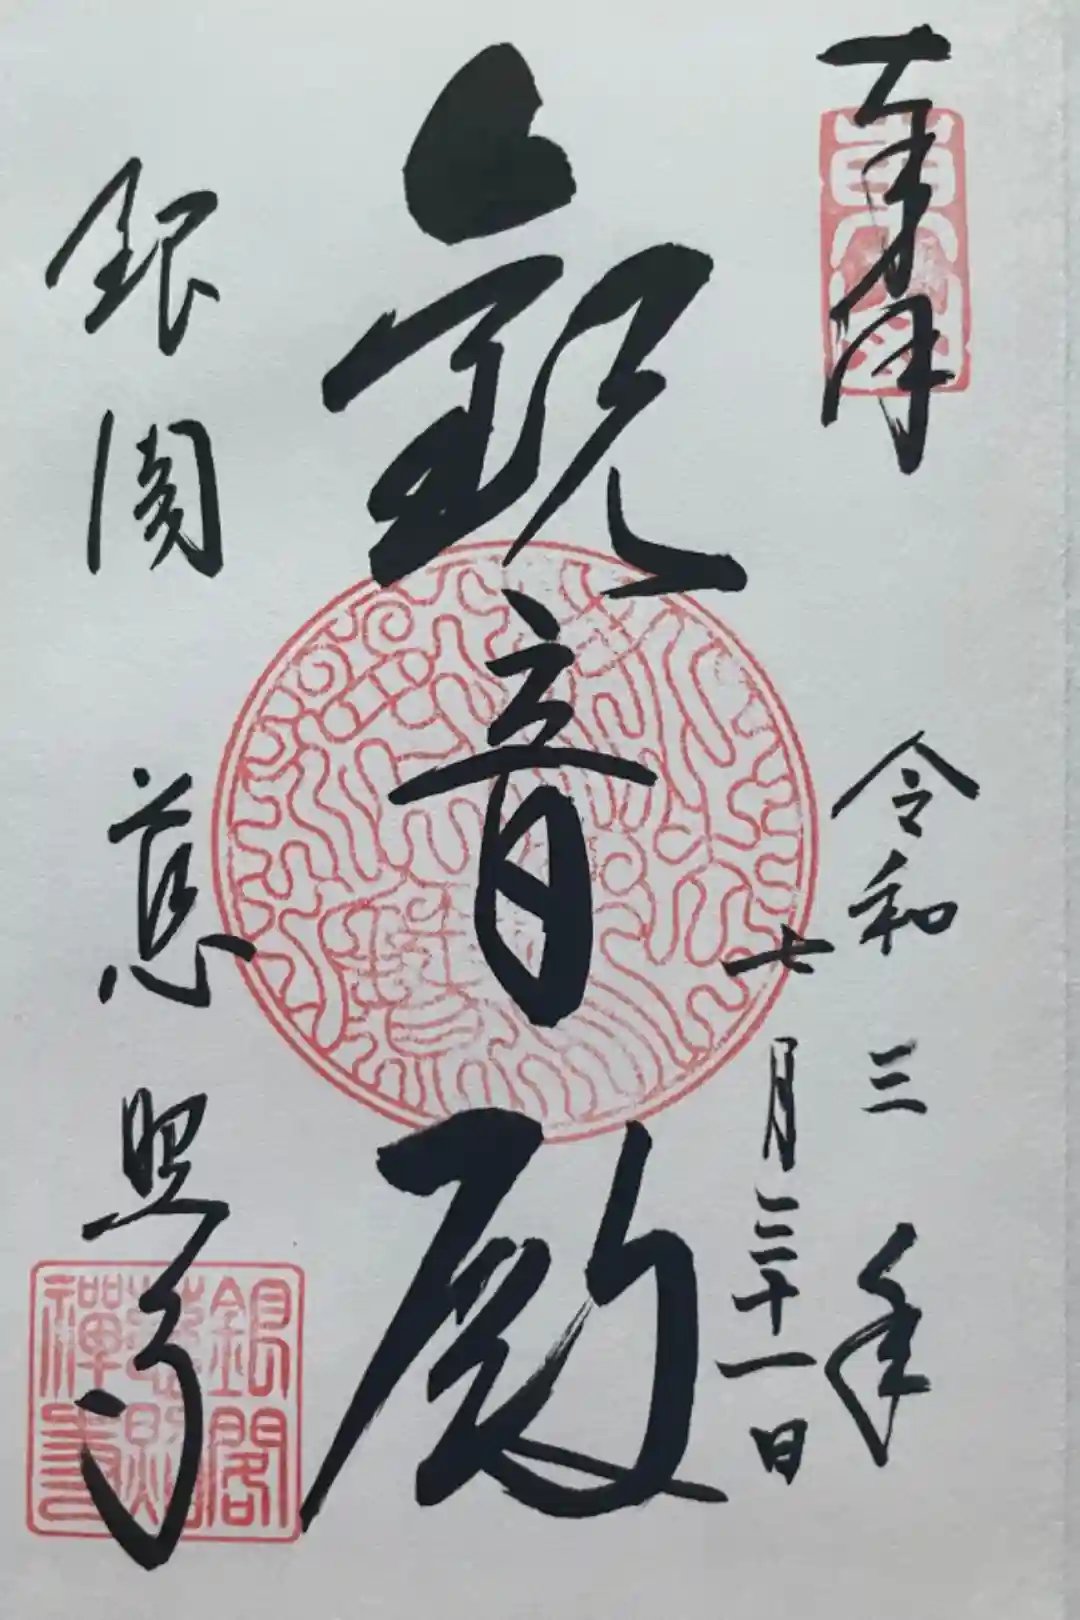 奉拝
令和三年
七月三十一日
観音殿
銀閣 慈照寺
銀閣
慈照
禪寺